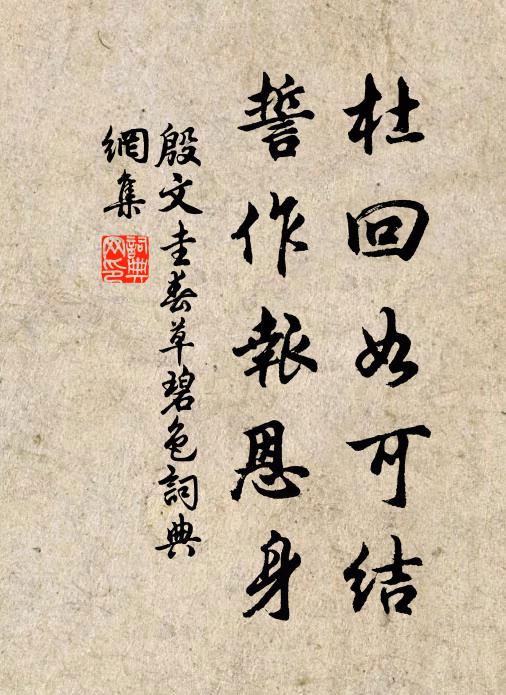 杜回如可结
誓作報恩身
殷文圭春草碧色詞典
網集
詞典
网印